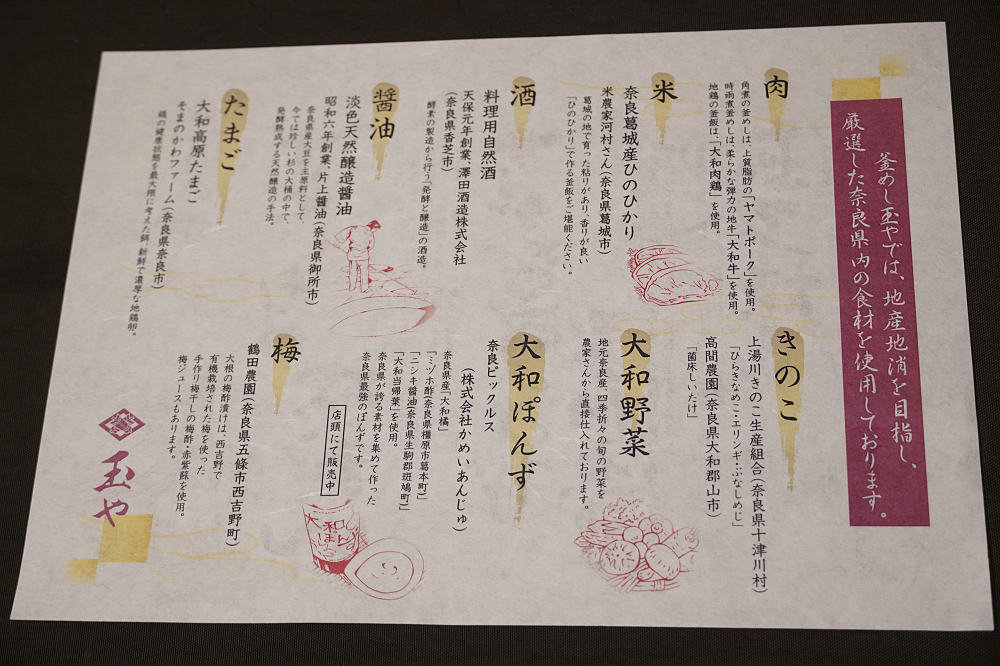 釜めし玉やでは、地産地消を目指し、
厳選した奈良県内の食材を使用しております。
肉
角煮の釜めしは、上質脂肪の「ヤマトポーク」を使用。
時雨煮釜めしは、柔らかな弾力の地牛「大和牛」を使用。
地鶏の釜飯は、「大和肉鶏」を使用。
米
奈良葛城産ひのひかり
米農家河村さん(奈良県葛城市)
葛城の地で育った粘りがあり、香りが良い
「ひのひかり」で作る釜飯をご堪能ください。
酒
料理用自然酒
天保元年創業、澤田酒造株式会社
(奈良県香芝市)
酵素の製造から行う「発酵と醸造」の酒造。
醤油
淡色天然醸造醤油
昭和六年創業、片上醤油(奈良県御所市)
奈良県産大豆を主原料として、
今では珍しい杉の大桶の中で、
発酵熟成する天然醸造の手法。
たまご
大和高原たまご
そまのかわファーム(奈良県奈良市)
鶏の健康状態を最大限に考えた餌、新鮮で濃厚な地鶏卵。
きのこ
上湯川きのこ生産組合(奈良県十津川村)
「ひらきなめこ・エリンギ・ぶなしめじ」
高間農園(奈良県大和郡山市)
「菌床しいたけ」
大和野菜
地元奈良産、四季折々の旬の野菜を
農家さんから直接仕入れております。
大和ぽんず
奈良ピックルス
(株式会社かめいあんじゅ)
奈良県産「大和橘」
「ミヅホ酢(奈良県橿原市葛本町)」
「ニシキ醤油(奈良県生駒郡斑鳩町)」
「大和当帰葉」を使用。
奈良県が誇る素材を集めて作った
奈良県最強のぽんずです。
店頭にて販売中
大和
ぽんず
梅
鶴田農園(奈良県五條市西吉野町)
大根の梅酢漬けは、西吉野で
有機栽培された梅を使った
手作り梅干しの梅酢・赤紫蘇を使用。
梅ジュースもあります。
玉や